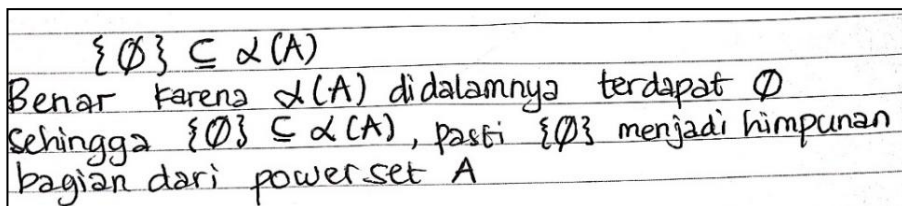 {∅} ⊆ α(A)
Benar karena α(A) didalamnya terdapat ∅
sehingga {∅} ⊆ α(A), pasti {∅} menjadi himpunan
bagian dari powerset A